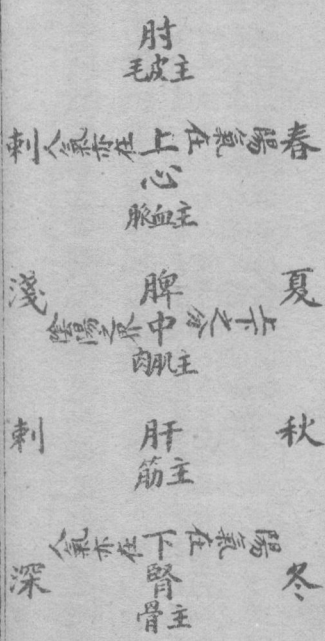 肺
主皮毛
春
陽氣在
上
人氣亦在
刺
心
主血脈
夏
脾
淺
上下之分
中
陰陽之界
主肌肉
秋
肝
刺
主筋
陽氣在
下
人氣亦在
冬
腎
深
主骨